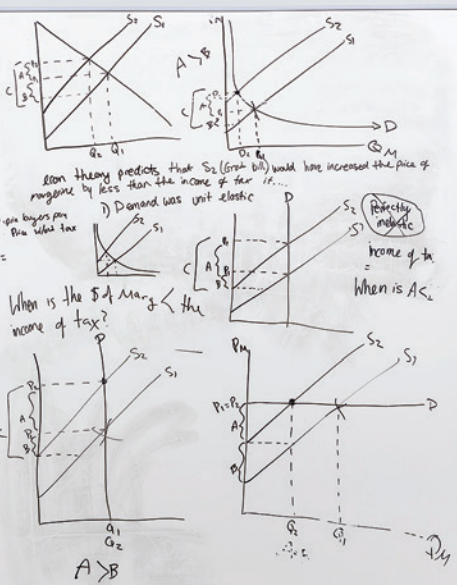 S2 S1
A
C
B
Q2 Q1
A > B
S2
S1
P2
C
A
B
D
Q2
QM
econ theory predicts that S2 (Grout bill) would have increased the price of
margerine by less than the income of tax if....
1) Demand was unit elastic
buyers pay
Price w/out tax
=
S2
S1
D
S2
S1
C
A
B
Perfectly
inelastic
income of
=
When is
When is the $ of Marg < the
income of tax?
D
S2
S1
P2
A
B
Q1
Q2
A > B
PM
S2
S1
P1=P2
D
A
B
Q2
Q1